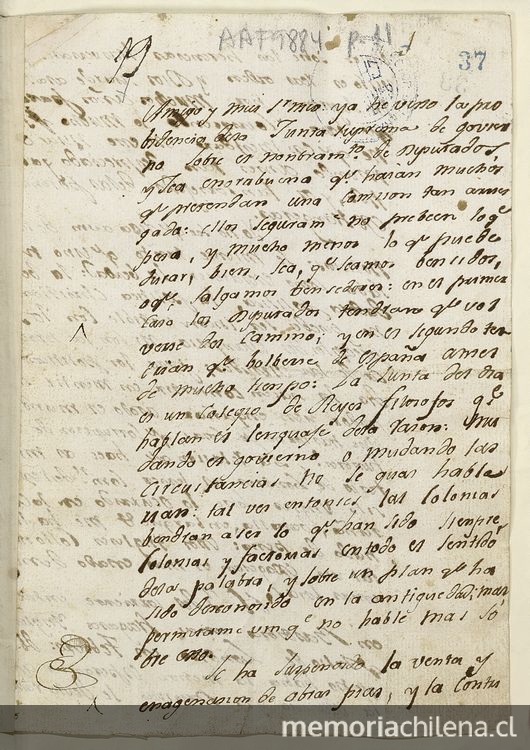 19
AAF9884 p. 11
37
Amigo y mui sr mio: ya he visto la pro
bidencia dela Junta suprema de govier
no sobre el nombramto de Diputados,
y sea enorabuena qe haran muchos
qe pretendan una comision tan arries
gada: ellos seguram no preben loqe
pesa, y mucho menos lo qe puede
durar, bien sea, qe seamos bensidos,
o qe salgamos bensedores: en el primer
caso los Diputados tendran qe vol
verse del camino, y en el segundo ten
drian qe bolberse de España antes
de mucho tiempo: La Junta del dia
es un Colegio de Reyes filosofos qe
hablan el lenguaje dela rason: mu
dando el govierno o mudando las
circustancias no se qual habla
rian: tal ves entonses las Colonias
bendrian aser lo qe han sido siempre
Colonias y factorias entodo el sentido
delas palabra, y sobre un plan qe ha
sido desconosido en la antiguedad; mas
permitame um qe no hable mas so
bre eso.
Se ha suspendido la venta y
enagenasion de obras pias, y la Contri
memoriachilena.cl